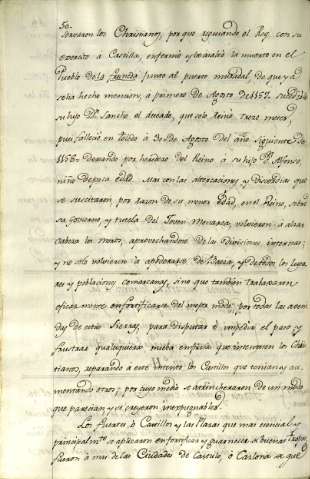 50.
tuvieron los Christianos, porque siguiendo el Rey, con su
exercito á Castilla, enfermó y le asaltó la muerte en el
Pueblo de la Fresneda junto al puerto muradal, de que ya
se ha hecho mencion, á primero de Agosto de 1157.
su hijo Dn. Sancho el deseado, que solo Reinó Trece meses,
pues falleció en Toledo á 30 de Agosto del año siguiente de
1158 dexando por heredero del Reino á su hijo Dn. Alfonso
niño de poca edad. Mas con las altercaciones y Discordias que
se suscitaron por razon de su menor edad, en el Reino, sobre
su govierno, y tutela del Joven Monarca, volvieron á alzar
cabeza los moros, aprovechandose de las divisiones internas;
y no solo volvieron á apoderarse de Baeza, y de todos los Luga
res y poblaciones comarcanas, sino que tambien trataron
eficazmente en fortificarse del mejor modo, por todas las aveni
das de estas Sierras, para disputar é impedir el paso y
frustrar qualquiera nueba empresa que intentasen los Chris
tianos, reparando á este intento los Castillos que tenian y au
mentando otros; por cuyo medio se atrincheraron de un modo
que parecian y se creyeron inexpugnables.
Los fuertes, ó Castillos y las Plazas que mas esencial y
principalmte. se aplicaron en fortificar y guarnecer de buenas Tropas
fueron á mas de las Ciudades de Castulo, ó Cazlona se que